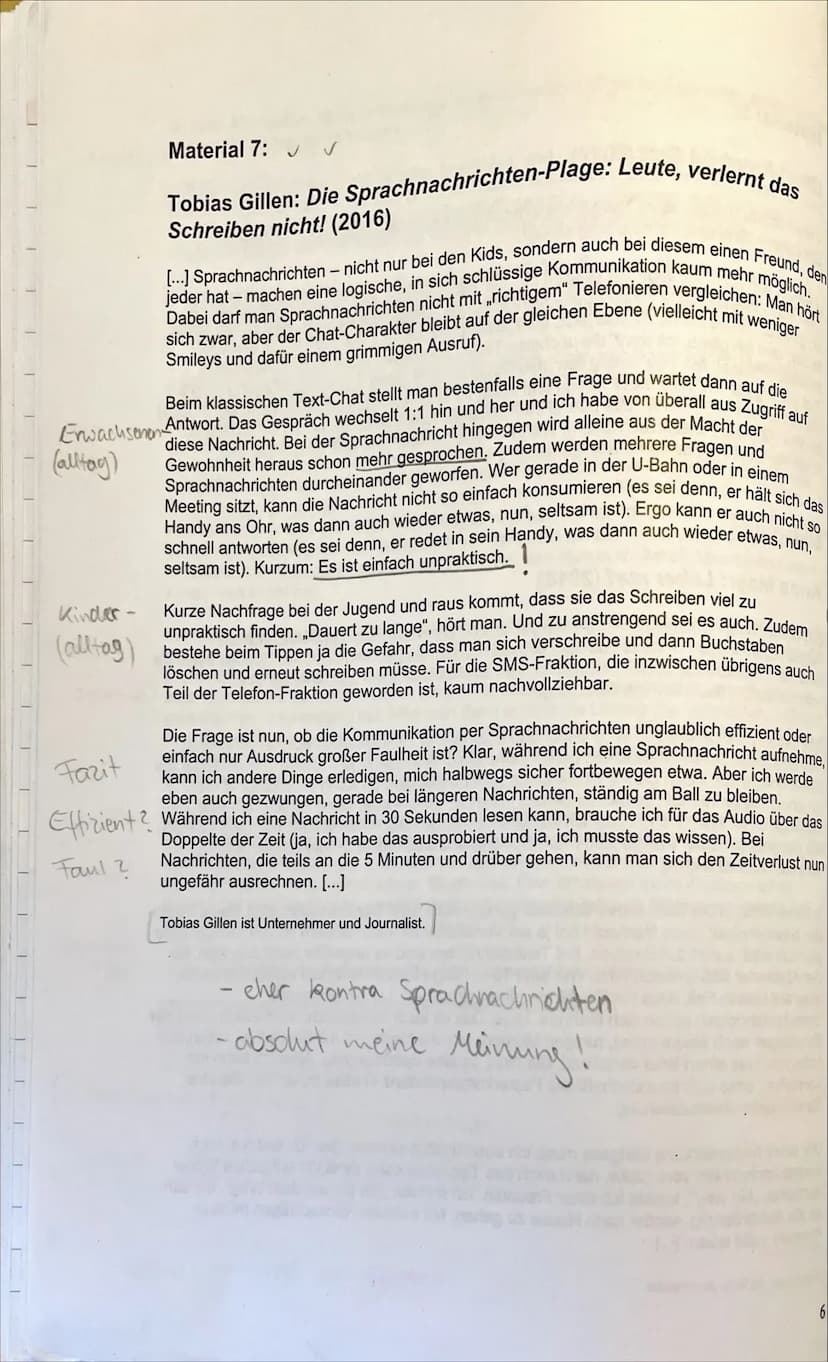 Material 7: ✓ ✓
Tobias Gillen: Die Sprachnachrichten-Plage: Leute, verlernt das
Schreiben nicht! (2016)
[...] Sprachnachrichten – nicht nur bei den Kids, sondern auch bei diesem einen Freund, den
jeder hat – machen eine logische, in sich schlüssige Kommunikation kaum mehr möglich.
Dabei darf man Sprachnachrichten nicht mit „richtigem“ Telefonieren vergleichen: Man hört
sich zwar, aber der Chat-Charakter bleibt auf der gleichen Ebene (vielleicht mit weniger
Smileys und dafür einem grimmigen Ausruf).
Beim klassischen Text-Chat stellt man bestenfalls eine Frage und wartet dann auf die
Antwort. Das Gespräch wechselt 1:1 hin und her und ich habe von überall aus Zugriff auf
Erwachsenen-
(alltag)
diese Nachricht. Bei der Sprachnachricht hingegen wird alleine aus der Macht der
Gewohnheit heraus schon mehr gesprochen. Zudem werden mehrere Fragen und
Sprachnachrichten durcheinander geworfen. Wer gerade in der U-Bahn oder in einem
Meeting sitzt, kann die Nachricht nicht so einfach konsumieren (es sei denn, er hält sich das
Handy ans Ohr, was dann auch wieder etwas, nun, seltsam ist). Ergo kann er auch nicht so
schnell antworten (es sei denn, er redet in sein Handy, was dann auch wieder etwas, nun,
seltsam ist). Kurzum: Es ist einfach unpraktisch. !
Kinder-
(alltag)
Kurze Nachfrage bei der Jugend und raus kommt, dass sie das Schreiben viel zu
unpraktisch finden. „Dauert zu lange“, hört man. Und zu anstrengend sei es auch. Zudem
bestehe beim Tippen ja die Gefahr, dass man sich verschreibe und dann Buchstaben
löschen und erneut schreiben müsse. Für die SMS-Fraktion, die inzwischen übrigens auch
Teil der Telefon-Fraktion geworden ist, kaum nachvollziehbar.
Die Frage ist nun, ob die Kommunikation per Sprachnachrichten unglaublich effizient oder
einfach nur Ausdruck großer Faulheit ist? Klar, während ich eine Sprachnachricht aufnehme,
Fazit
kann ich andere Dinge erledigen, mich halbwegs sicher fortbewegen etwa. Aber ich werde
eben auch gezwungen, gerade bei längeren Nachrichten, ständig am Ball zu bleiben.
Effizient?
Während ich eine Nachricht in 30 Sekunden lesen kann, brauche ich für das Audio über das
Doppelte der Zeit (ja, ich habe das ausprobiert und ja, ich musste das wissen). Bei
Faul?
Nachrichten, die teils an die 5 Minuten und drüber gehen, kann man sich den Zeitverlust nun
ungefähr ausrechnen. [...]
Tobias Gillen ist Unternehmer und Journalist.
- eher kontra Sprachnachrichten
- absolut meine Meinung!
6